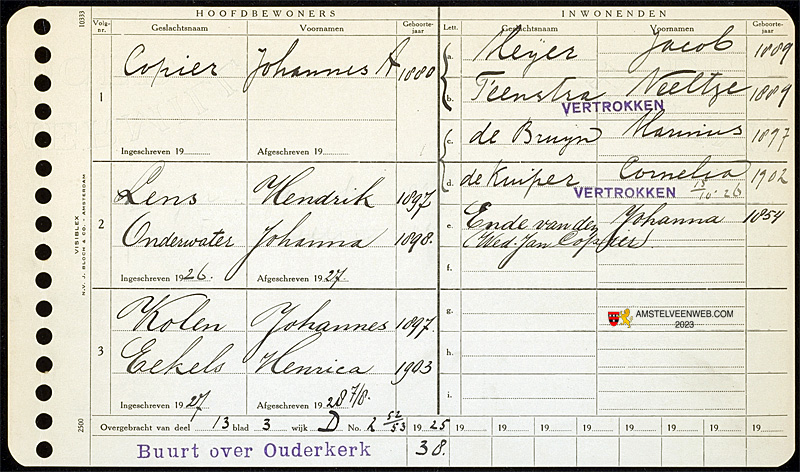 HOOFDBEWONERS INWONENDEN
Volg-nr. Geslachtsnaam Voornamen Geboorte-jaar Lett. Geslachtsnaam Voornamen Geboorte-jaar
1 Copier Johannes A 1880
a. Meijer Jacob 1889
b. Teenstra Neeltje 1889
VERTROKKEN
c. de Bruyn Marinus 1897
Ingeschreven 19 Afgeschreven 19
d. de Kuiper Cornelia 1902
VERTROKKEN 15/10-26
2 Lens Hendrik 1897
Onderwater Johanna 1898.
e. Ende van den Johanna 1854
(Wed. Jan Copier).
f.
Ingeschreven 1926. Afgeschreven 1927.
3 Kolen Johannes 1897.
Eekels Henrica 1903
g.
h.
i.
Ingeschreven 1927 Afgeschreven 1928 7/8.
Overgebracht van deel 13 blad 3 wijk D No. 2 52/53 1925 19 19 19 19 19 19 19 19
Buurt over Ouderkerk 38.
10333
VISIBLEX
N.V. J. BLOCH & CO. - AMSTERDAM
2500
AMSTELVEENWEB.COM
2023